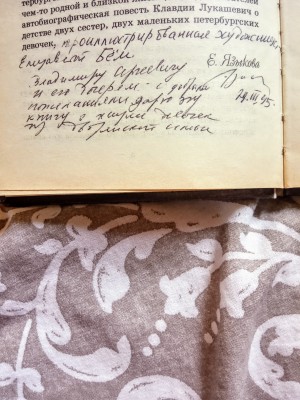 тербур
чем-то родной и близкой книг
автобиографическая повесть Клавдии Лукашевич о
детстве двух сестер, двух маленьких петербургских
девочек, проиллюстрированная художницей
Елизаветой Бём
Е. Языкова
Владимиру Сергеевичу
и его дочерям - с добрыми
пожеланиями дарю эту
29.III.95
книгу о жизни девочек
из дворянской семьи